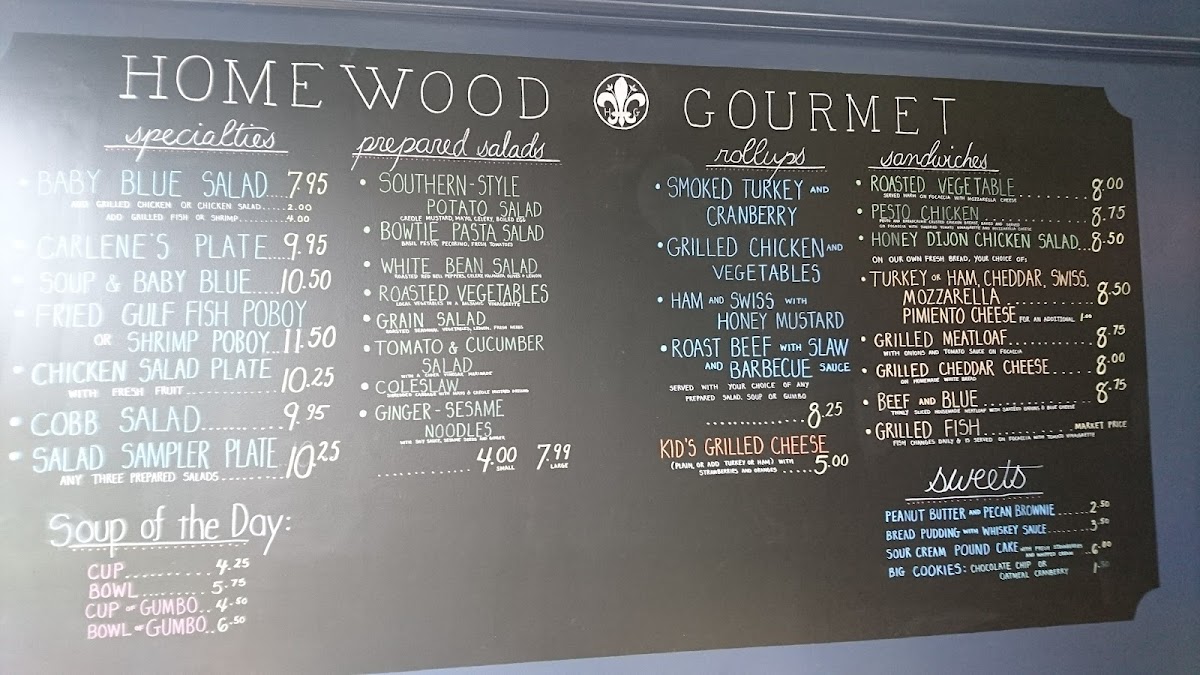 HOMEWOOD GOURMET
H G
specialties
• BABY BLUE SALAD...7.95
ADD GRILLED CHICKEN OR CHICKEN SALAD.....2.00
ADD GRILLED FISH OR SHRIMP..........4.00
• CARLENE'S PLATE....9.95
• SOUP & BABY BLUE....10.50
• FRIED GULF FISH POBOY
OR SHRIMP POBOY...11.50
• CHICKEN SALAD PLATE
WITH FRESH FRUIT...............10.25
• COBB SALAD..........9.95
• SALAD SAMPLER PLATE
ANY THREE PREPARED SALADS..........10.25
Soup of the Day:
CUP..........4.25
BOWL........5.75
CUP OF GUMBO...4.50
BOWL OF GUMBO..6.50
prepared salads
• SOUTHERN-STYLE
POTATO SALAD
CREOLE MUSTARD, MAYO, CELERY, BOILED EGG
• BOWTIE PASTA SALAD
BASIL PESTO, PECORINO, FRESH TOMATOES
• WHITE BEAN SALAD
ROASTED RED BELL PEPPERS, CELERY, KALAMATA OLIVES & LEMON
• ROASTED VEGETABLES
LOCAL VEGETABLES IN A BALSAMIC VINAIGRETTE
• GRAIN SALAD
ROASTED SEASONAL VEGETABLES, LEMON, FRESH HERBS
• TOMATO & CUCUMBER
SALAD
WITH A CIDER VINEGAR MARINADE
• COLESLAW
SHREDDED CABBAGE WITH MAYO & CREOLE MUSTARD DRESSING
• GINGER-SESAME
NOODLES
WITH SOY SAUCE, SESAME SEEDS AND GINGER
..............4.00 SMALL 7.99 LARGE
rollups
• SMOKED TURKEY AND
CRANBERRY
• GRILLED CHICKEN AND
VEGETABLES
• HAM AND SWISS WITH
HONEY MUSTARD
• ROAST BEEF WITH SLAW
AND BARBECUE SAUCE
SERVED WITH YOUR CHOICE OF ANY
PREPARED SALAD, SOUP OR GUMBO
..............8.25
KID'S GRILLED CHEESE
(PLAIN, OR ADD TURKEY OR HAM) WITH
STRAWBERRIES AND ORANGES.....5.00
sandwiches
• ROASTED VEGETABLE..........8.00
SERVED WARM ON FOCACCIA WITH MOZZARELLA CHEESE
• PESTO CHICKEN..............8.75
ON FOCACCIA WITH TOMATO VINAIGRETTE AND MOZZARELLA CHEESE
• HONEY DIJON CHICKEN SALAD...8.50
ON OUR OWN FRESH BREAD, YOUR CHOICE OF:
• TURKEY OR HAM, CHEDDAR, SWISS,
MOZZARELLA............8.50
PIMIENTO CHEESE FOR AN ADDITIONAL 1.00
• GRILLED MEATLOAF............8.75
WITH ONIONS AND TOMATO SAUCE ON FOCACCIA
• GRILLED CHEDDAR CHEESE.....8.00
ON HOMEMADE WHITE BREAD
• BEEF AND BLUE................8.75
THINLY SLICED HOUSEMADE MEATLOAF WITH SAUTÉED ONIONS & BLUE CHEESE
• GRILLED FISH..............MARKET PRICE
FISH CHANGES DAILY & IS SERVED ON FOCACCIA WITH TOMATO VINAIGRETTE
sweets
PEANUT BUTTER AND PECAN BROWNIE......2.50
BREAD PUDDING WITH WHISKEY SAUCE......3.50
SOUR CREAM POUND CAKE WITH FRESH STRAWBERRIES AND WHIPPED CREAM..6.00
BIG COOKIES: CHOCOLATE CHIP OR
OATMEAL CRANBERRY